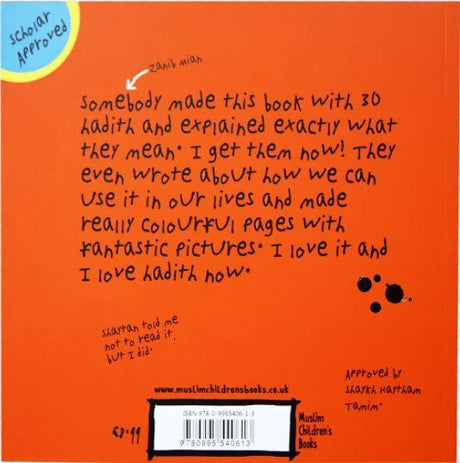 Scholar
Approved
zanib mian
Somebody made this book with 30
hadith and explained exactly what
they mean. I get them now! They
even wrote about how we can
use it in our lives and made
really colourful pages with
fantastic pictures. I love it and
I love hadith now.
shaytan told me
not to read it.
but I did.
Approved by
Shaykh Haytham
Tamim.
www.muslimchildrensbooks.co.uk
ISBN 978-0-9955406-1-3
9 780995 540613
£8.99
Muslim
Children's
Books